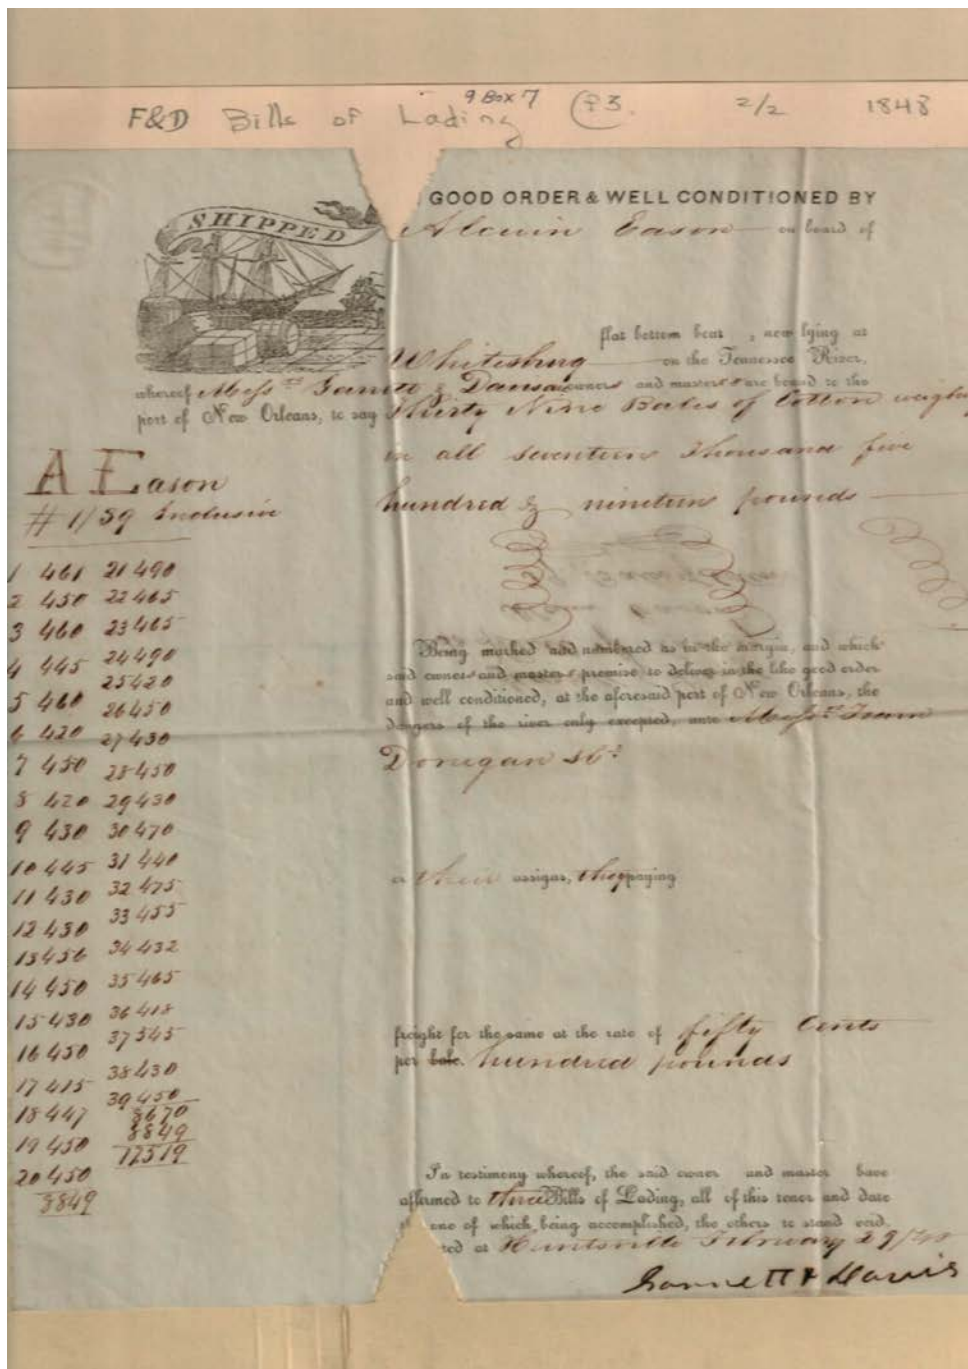 9 Box 7
F&D Bills of Lading 2/2 1848
SHIPPED
GOOD ORDER & WELL CONDITIONED BY
Alcuin Eason on board of
flat bottom boat , now lying at
Whitesburg on the Tennessee River,
whereof Mess rs & owners and masters are bound to the
port of New Orleans, to say Thirty Nine Bales of Cotton
in all seventeen thousand five
hundred & nineteen pounds
A Eason
# 1/39 Inclusive
1 461 21 490
2 450 22 465
3 460 23 465
4 445 24 490
25 420
5 460 26 450
6 420 27 430
7 450 28 450
8 420 29 430
9 430 30 470
10 445 31 440
11 430 32 475
12 430 33 455
13 456 34 432
14 450 35 465
15 430 36 418
16 450 37 545
17 415 38 430
18 447 39 450
19 450 8670
20 450 8849
8849 17519
Being marked and numbered as in the margin, and which
said owners and masters promise to deliver in the like good order
and well conditioned, at the aforesaid port of New Orleans, the
dangers of the river only excepted, unto Mess rs
Donegan
or their assigns, they paying
freight for the same at the rate of fifty Cents
per bale. hundred pounds
In testimony whereof, the said owner and master have
affirmed to three Bills of Lading, all of this tenor and date
one of which, being accomplished, the others to stand void.
ted at Huntsville February 29/48
Garnett & Davis